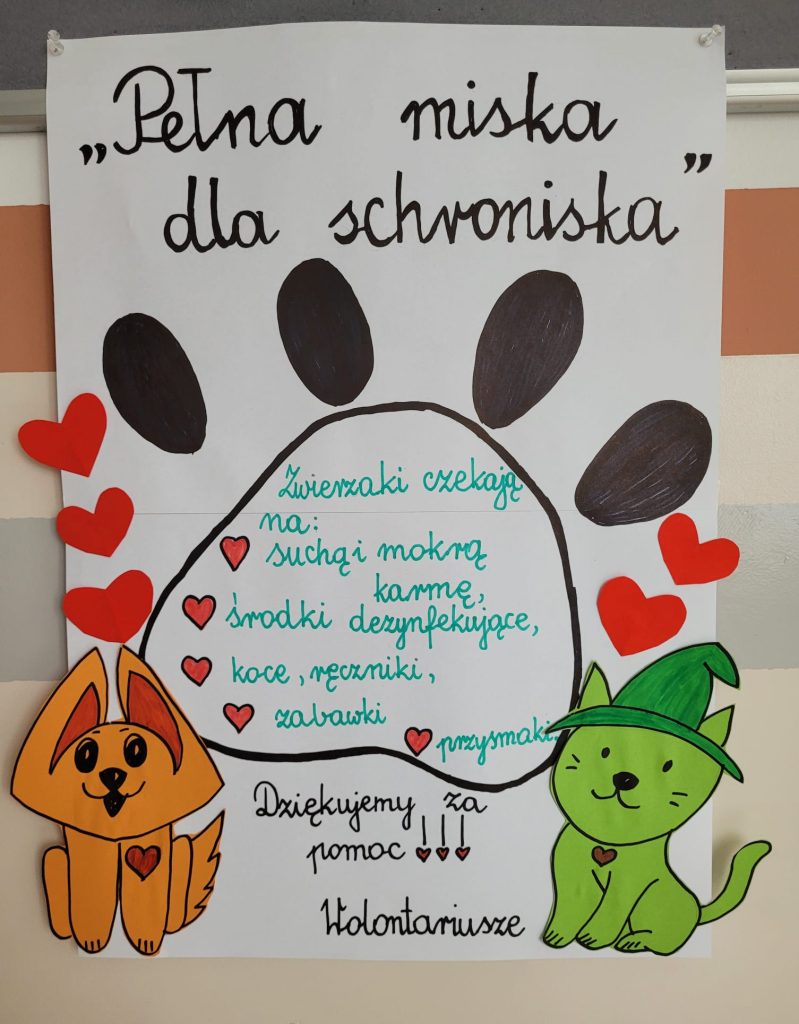 „Pełna miska
dla schroniska”
Zwierzaki czekają
na:
suchą i mokrą
karmę,
środki dezynfekujące,
koce, ręczniki,
zabawki
przysmaki.
Dziękujemy za
pomoc !!!
Wolontariusze